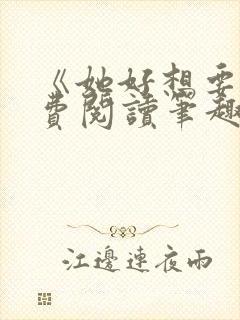 《她好想要
費閱讀筆趣
江邊連夜雨